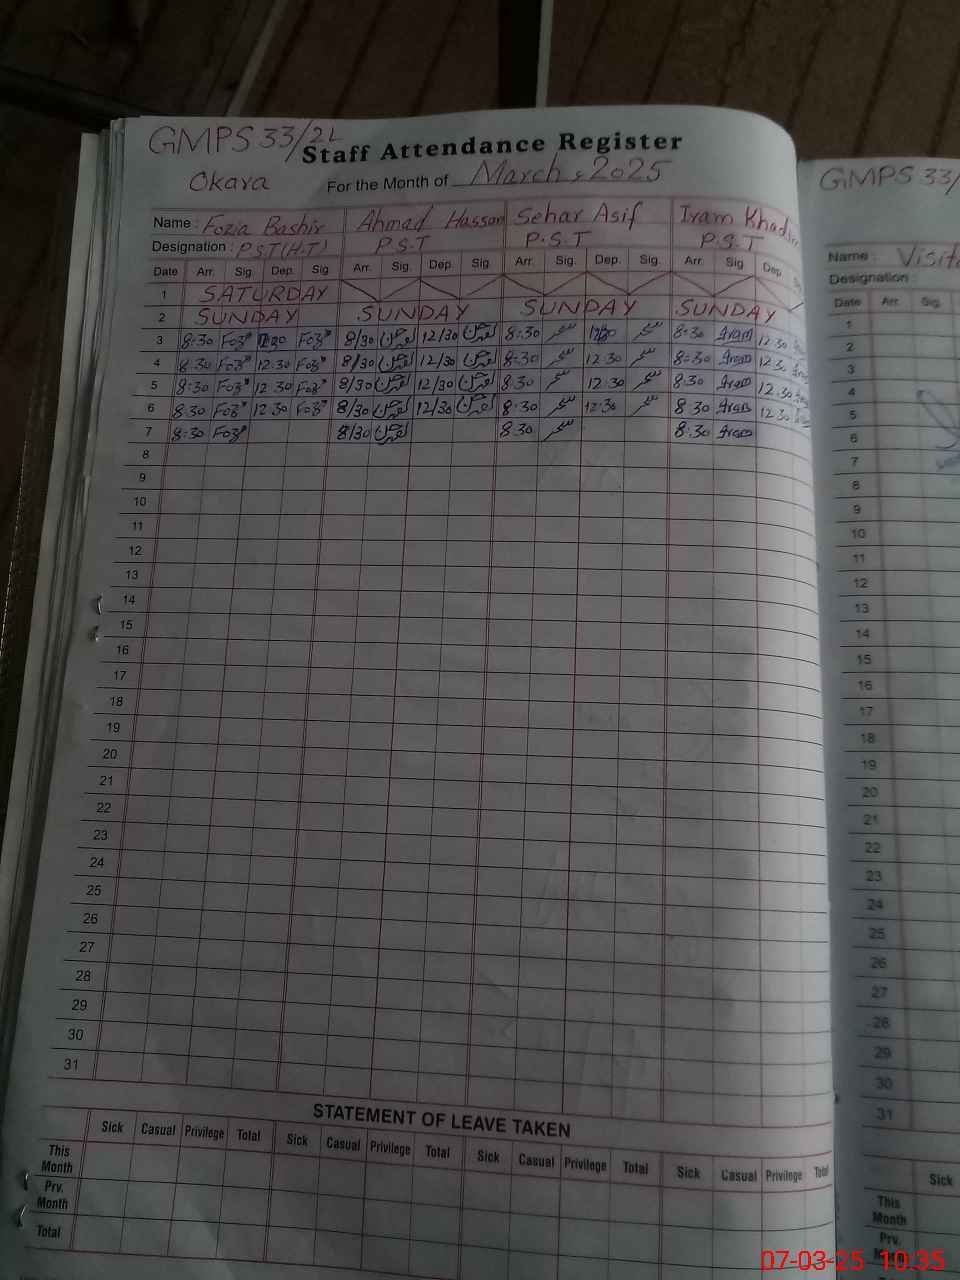 GMPS 33/2L
Staff Attendance Register
Okara For the Month of March, 2025
Name : Fozia Bashir Ahmad Hassan Sehar Asif Iram Khadim
Designation : P.S.T(H.T) P.S.T P.S.T P.S.T
Date Arr. Sig. Dep. Sig. Arr. Sig. Dep. Sig. Arr. Sig. Dep. Sig. Arr. Sig Dep.
1 SATURDAY
2 SUNDAY SUNDAY SUNDAY SUNDAY
3 8:30 8/30 12/30 8:30 8:30 Iram 12 30
4 8 30 12.30 8/30 12/30 8:30 12:30 8:30 Iram 12 30
5 8:30 12 30 8/30 12/30 8:30 12:30 8:30 Iram 12 30
6 8.30 12 30 8/30 12/30 8:30 12:30 8 30 Iram 12 30
7 8:30 8/30 8:30 8:30 Iram
8
9
10
11
12
13
14
15
16
17
18
19
20
21
22
23
24
25
26
27
28
29
30
31
STATEMENT OF LEAVE TAKEN
Sick Casual Privilege Total Sick Casual Privilege Total Sick Casual Privilege Total Sick Casual Privilege Total
This Month
Prv. Month
Total
GMPS 33/
Name : Visito
Designation :
Date Arr. Sig.
1
2
3
4
5
6
7
8
9
10
11
12
13
14
15
16
17
18
19
20
21
22
23
24
25
26
27
28
29
30
31
Sick
This Month
Prv.
07-03-25 10:35